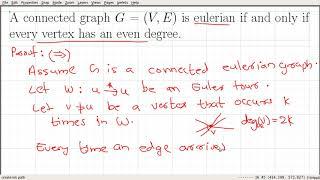 A connected graph G = (V, E) is eulerian if and only if
every vertex has an even degree.
Proof: (⇒)
Assume G is a connected eulerian graph.
Let W: u → u be an Euler tour.
Let v ≠ u be a vertex that occurs k
times in W. deg(v) = 2k
Every time an edge arrives